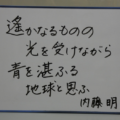 遙かなるものの
光を受けながら
青を湛ふる
地球と思ふ
内藤 明